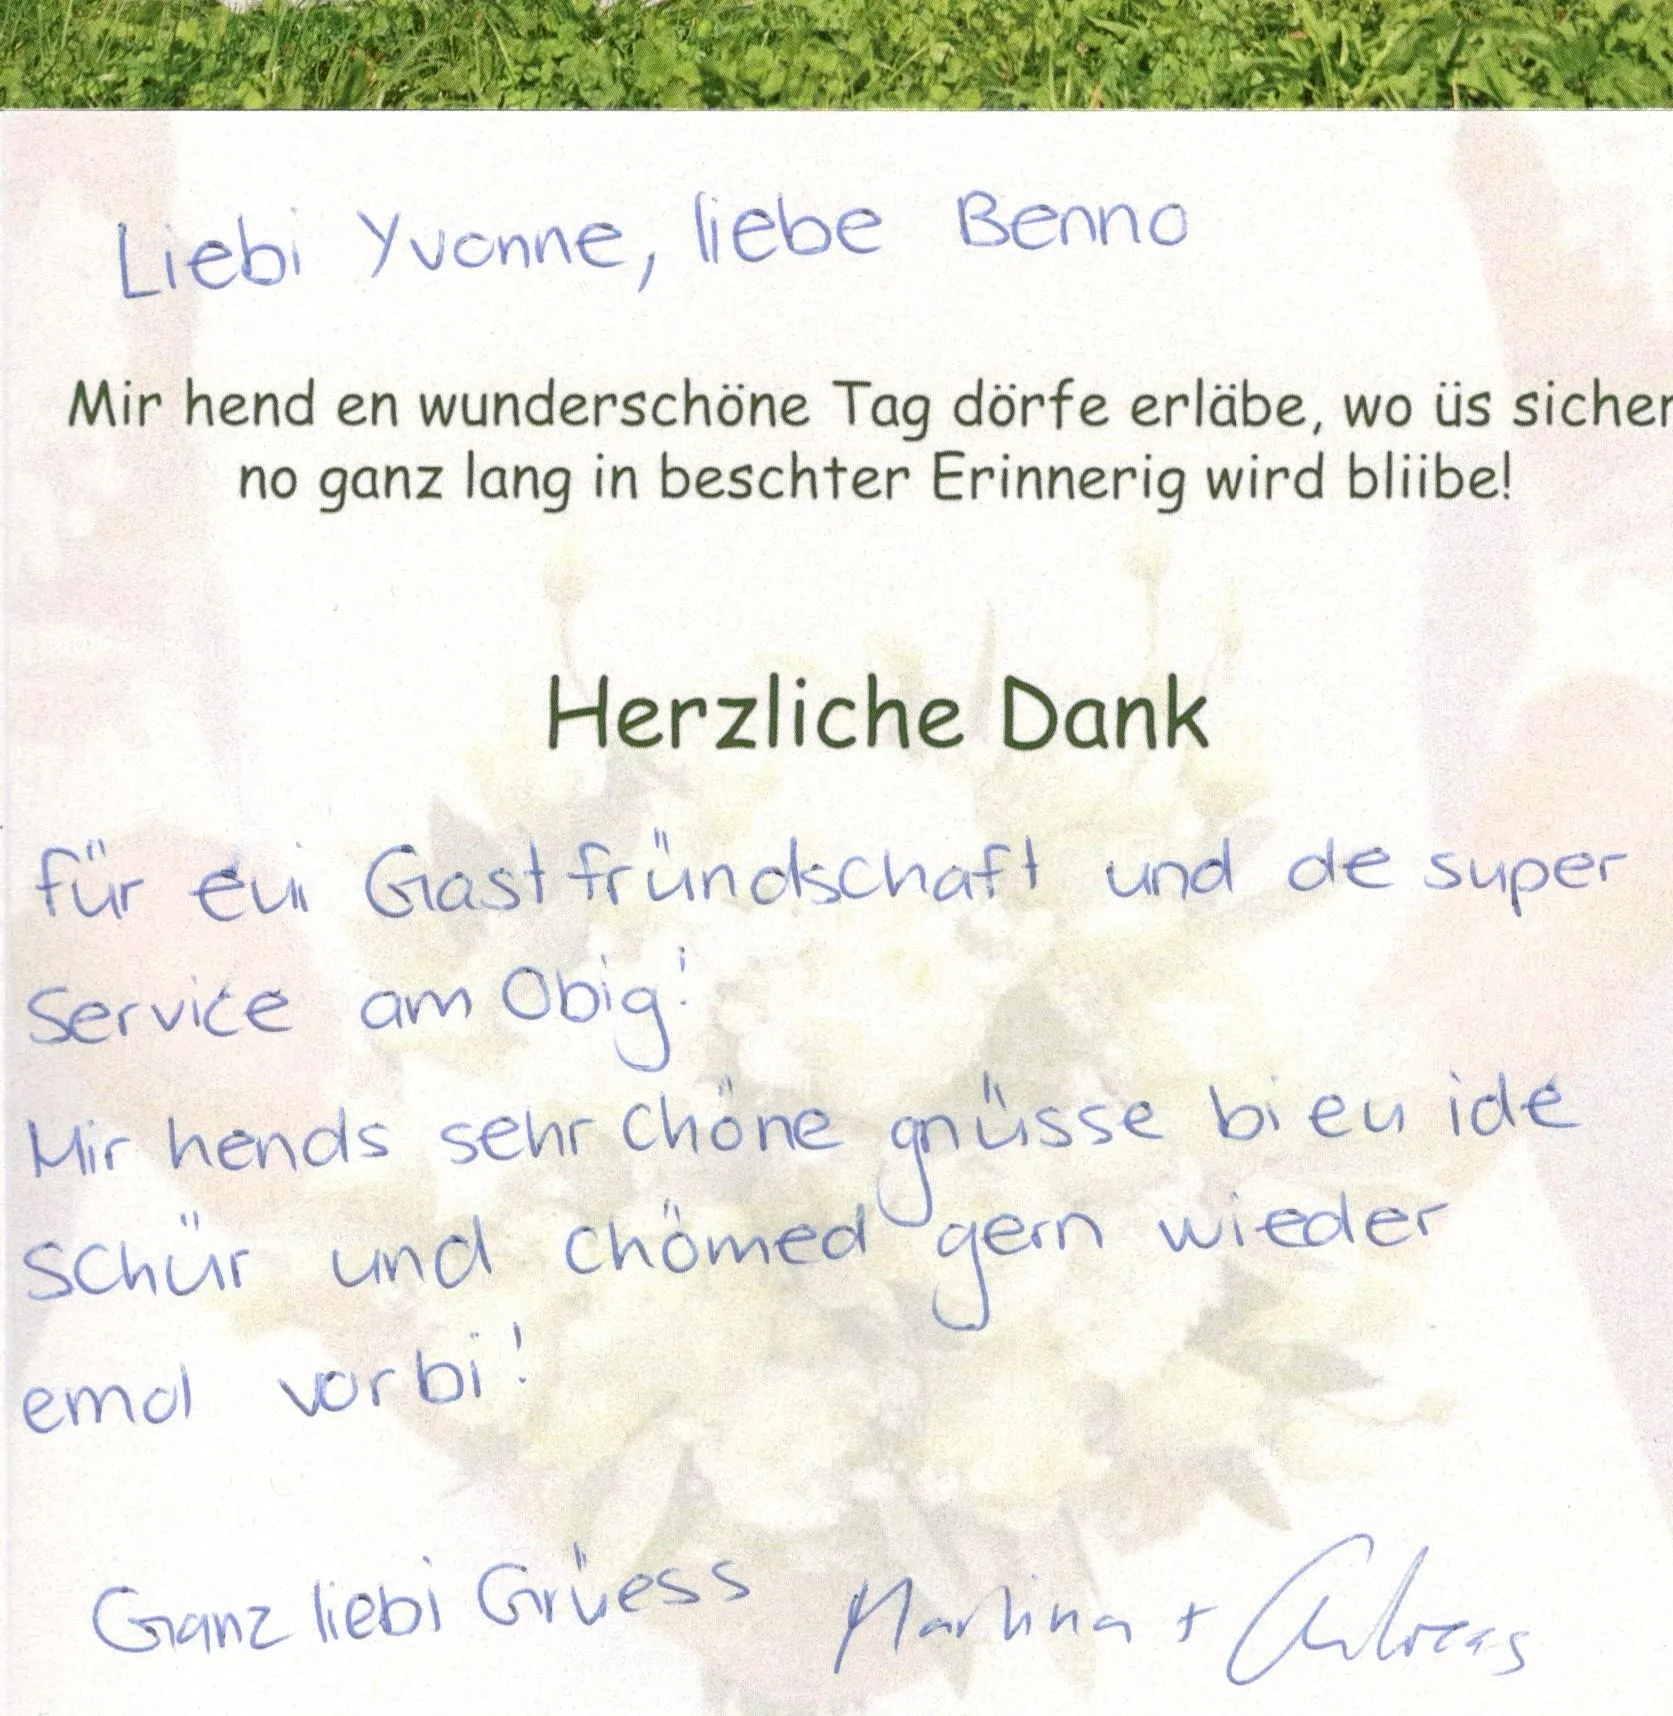 Liebi Yvonne, liebe Benno
Mir hend en wunderschöne Tag dörfe erläbe, wo üs sicher
no ganz lang in beschter Erinnerig wird bliibe!
Herzliche Dank
für eui Gastfründschaft und de super
Service am Obig!
Mir hends sehr chöne gnüsse bi eu ide
Schür und chömed gern wieder
emol vorbi!
Ganz liebi Grüess Martina + Andreas